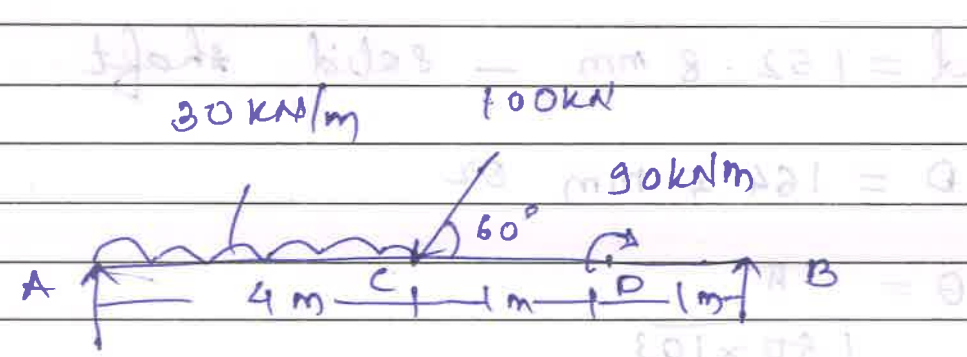 30 kN/m 100kN
90kNm
60°
A 4m C 1m D 1m B